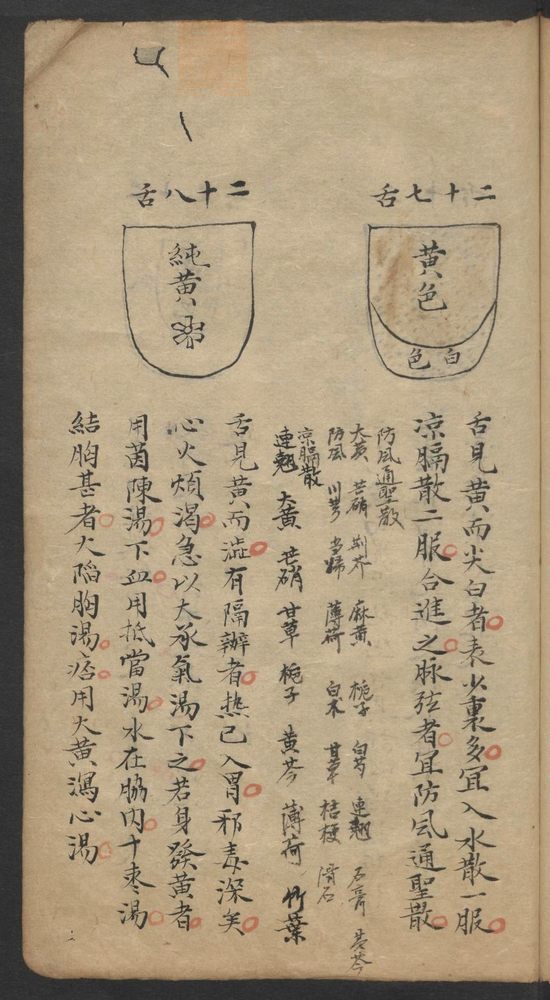 二十七舌
黄色
白色
舌見黄而尖白者表少裏多宜入水散一服
凉膈散二服合進之脉弦者宜防风通聖散
防风通聖散
大黄 芒硝 荆芥 麻黄 梔子 白芍 連翹 石膏 黄芩
防风 川芎 當婦 薄荷 白术 甘草 桔梗 滑石
凉膈散
連翹 大黄 芒硝 甘草 梔子 黄芩 薄荷 竹葉
二十八舌
純黄
舌見黄而澁有隔瓣者热已入胃邪毒深矣
心火煩渴急以大承氣湯下之若身發黄者
用茵陳湯下血用抵當湯水在脇内十枣湯
結胸甚者大陷胸湯痞用大黄瀉心湯